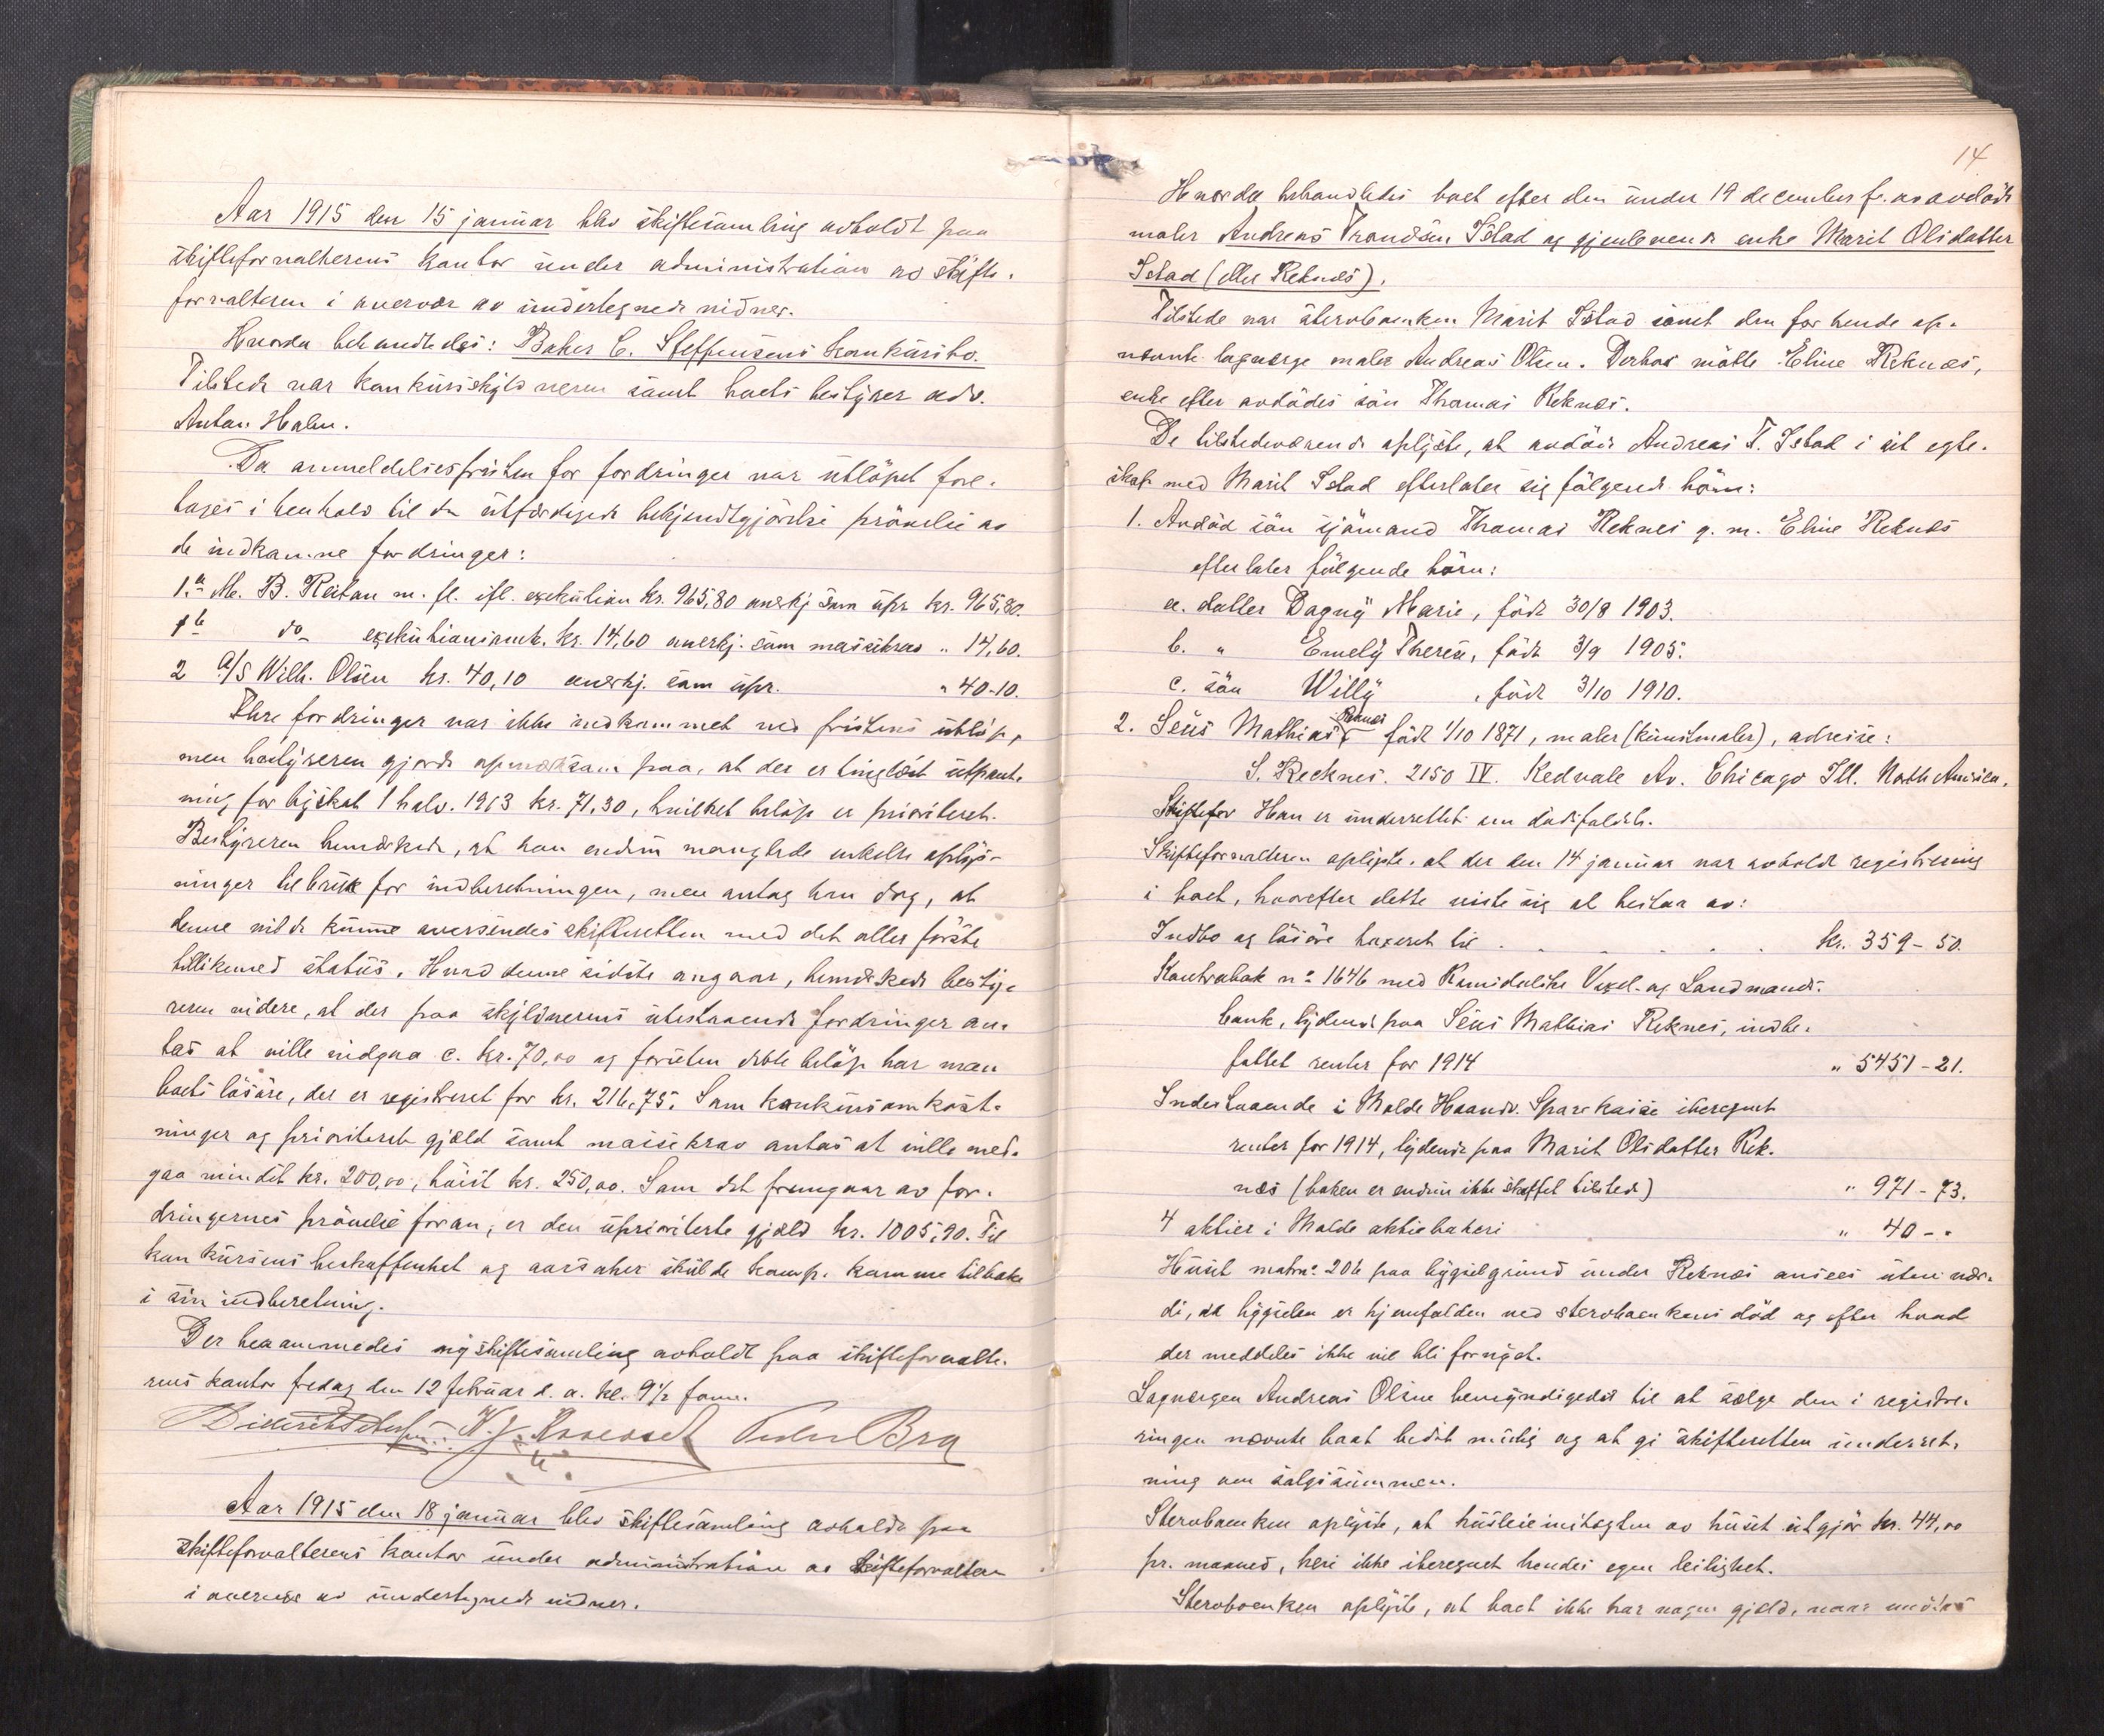 Aar 1915 den 15 januar blev skiftesamling avholdt paa
skifteforvalterens kontor under administration av skifte-
forvalteren i overvær av undertegnede vidner.
Hvorda behandledes: Baker C. Steffensens konkursbo.
Tilstede var konkursskyldneren samt boets bestyrer adv.
Anton Holm.
Da anmeldelsesfristen for fordringer var utløpet fore-
tages i henhold til den utfærdigede bekjendtgjørelse prøvelse av
de indkomne fordringer:
1.a M. B. Reitan m. fl. ifl. exekution kr. 965,80 anerkj som upr. kr. 965,80.
1b do exekutionsomk. kr. 14,60 anerkj. som massekrav " 14,60.
2 A/S Wilh. Olsen kr. 40,10 anerkj. som upr. " 40-10.
Flere fordringer var ikke indkommet ved fristens utløp,
men bestyreren gjorde opmerksom paa, at der er tinglæst utpant-
ning for byskat 1 halv. 1913 kr. 71,30, hvilket beløp er prioriteret.
Bestyreren bemerkede, at han endnu manglede enkelte oplys-
ninger til bruk for indberetningen, men antog han dog, at
denne vilde kunne oversendes skifteretten med det aller første
tillikemed status. Hvad denne sidste angaar, bemerkede besty-
reren videre, at der paa skyldnerens utestaaende fordringer an-
tas at ville indgaa c. kr. 70,00 og foruten dette beløp har man
boets løsøre, der er registreret for kr. 216,75. Som konkursomkost-
ninger og prioriterte gjæld samt massekrav antas at ville med-
gaa mindst kr. 200,00, høist kr. 250,00. Som det fremgaar av for-
dringernes prøvelse foran, er den upriviterte gjæld kr. 1005,90. Til
konkursens beskaffenhet og aarsaker skulde komp. komme tilbake
i sin indberetning.
Der berammedes ny skiftesamling avholdt paa skifteforvalte-
rens kontor fredag den 12 februar d. a. kl. 9½ form.
Peder Bra
Aar 1915 den 18 januar blev skiftesamling avholdt paa
skifteforvalterens kontor under administration av skifteforvalteren
i overvær av undertegnede vidner.
14
Hvorda behandledes boet efter den under 19 december f.a. avdøde
maler Andreas Trondsen Istad og gjenlevende enke Marit Olsdatter
Istad (eller Reknes).
Tilstede var stervboenken Marit Istad samt den for hende op-
nævnte lagverge maler Andreas Olsen. Derhos møtte Eline Reknes,
enke efter avdødes søn Thomas Reknes.
De tilstedeværende oplyste, at avdøde Andreas T. Istad i sit egte-
skap med Marit Istad efterlater sig følgende børn:
1. Avdød søn sjømand Thomas Reknes g. m. Eline Reknes
efterlater følgende børn:
a. datter Dagny Marie, født 30/8 1903.
b. " Emely Therese, født 3/9 1905.
c. søn Willy , født 3/10 1910.
2. Sëus Mathias Reknes født 1/10 1871, maler (kunstmaler), adresse:
S. Recknes. 2150 IV. Kedvale Av. Chicago Ill. North America.
Skiftefor Han er underrettet om dødsfaldet.
Skifteforvalteren oplyste, at der den 14 januar var avholdt registrering
i boet, hvorefter dette viste sig at bestaa av:
Indbo og løsøre taxeret til . . . . . . kr. 359-50.
Kontrabok no 1646 med Romsdalske Vexel- og Landmands-
bank, lydende paa Sëus Mathias Reknes, indbe-
fattet renter for 1914 " 5451-21.
Indestaaende i Molde Haandv. Sparekasse iberegnet
renter for 1914, lydende paa Marit Olsdatter Rek-
nes (boken er endnu ikke skaffet tilstede) " 971-73.
4 aktier i Molde aktiebakeri " 40-"
Huset matr. no 206 paa bygselgrund under Reknes ansees uten vær-
di, da bygselen er hjemfalden ved stervboenkens død og efter hvad
der meddeles ikke vil bli fornyet.
Lagvergen Andreas Olsen bemyndigedes til at sælge den i registre-
ringen nævnte baat bedst mulig og at gi skifteretten underret-
ning om salgssummen.
Stervboenken oplyste, at husleieindtægten av huset utgjør kr. 44,00
pr. maaned, heri ikke iberegnet hendes egen leilighet.
Stervboenken oplyste, at boet ikke har nogen gjæld, naar undtas